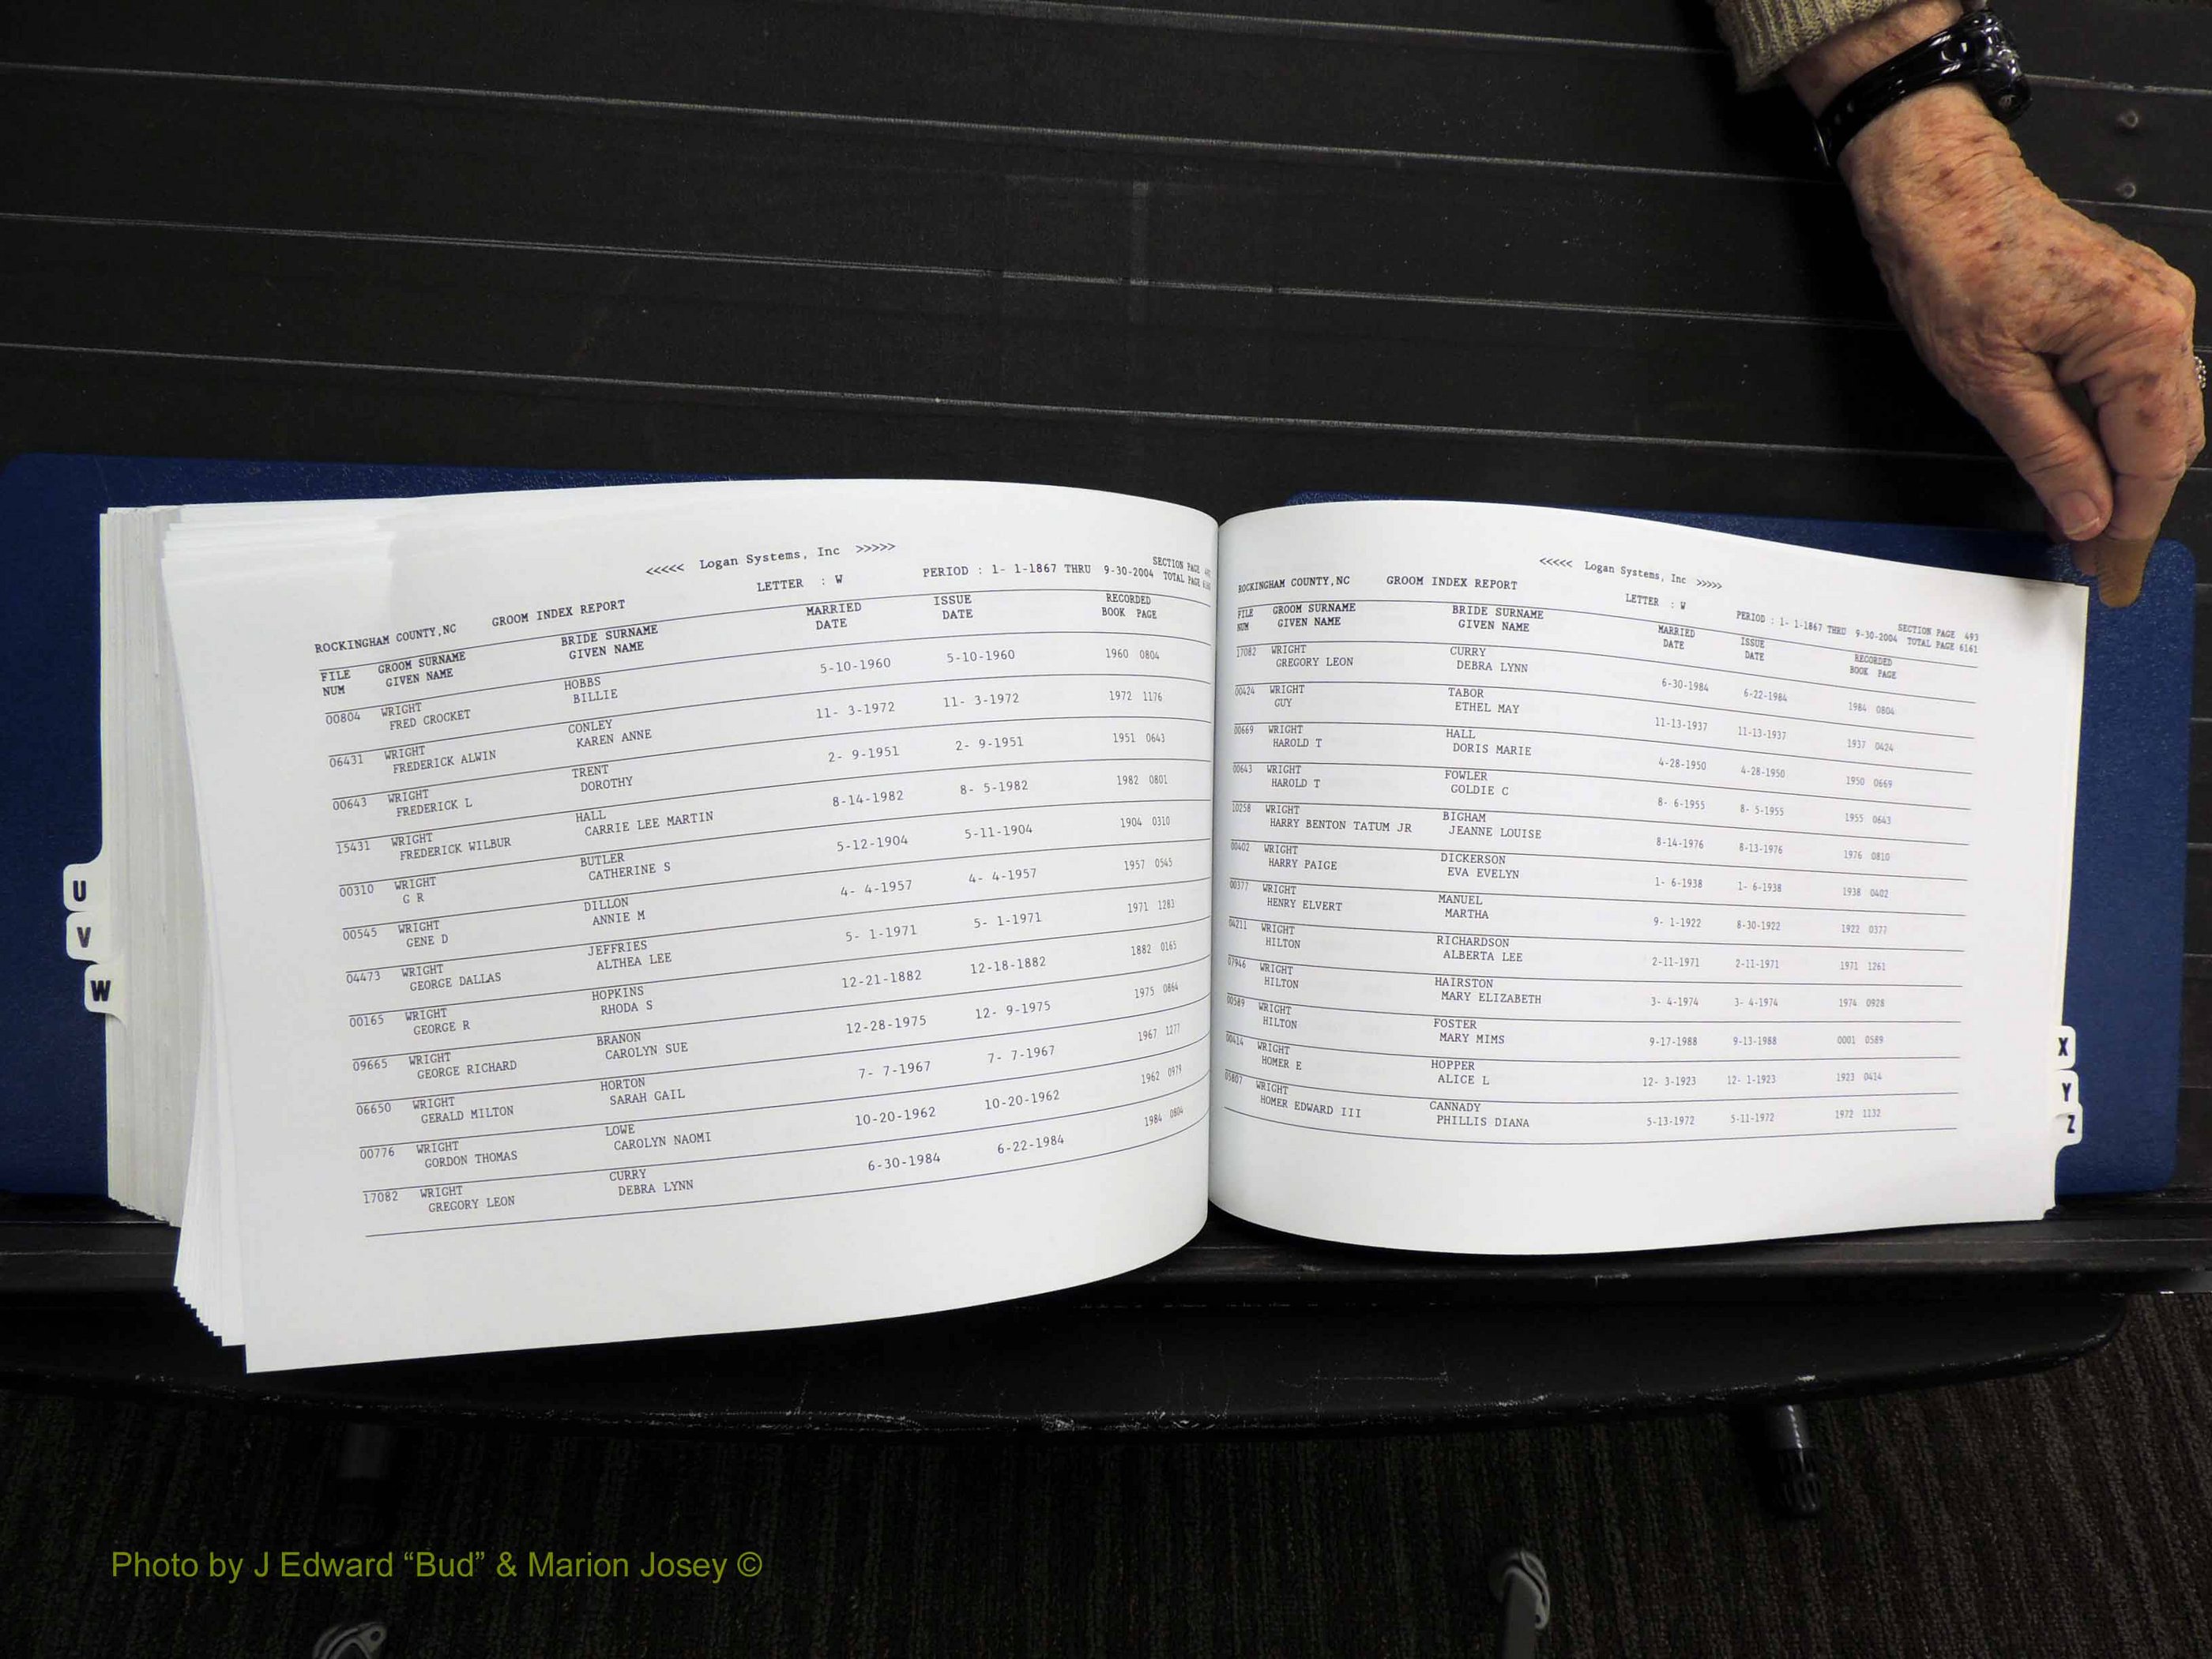 <<<<< Logan Systems, Inc >>>>>
SECTION PAGE
ROCKINGHAM COUNTY,NC GROOM INDEX REPORT LETTER : W PERIOD : 1- 1-1867 THRU 9-30-2004 TOTAL PAGE
FILE GROOM SURNAME BRIDE SURNAME MARRIED ISSUE RECORDED
NUM GIVEN NAME GIVEN NAME DATE DATE BOOK PAGE
00804 WRIGHT HOBBS 5-10-1960 5-10-1960 1960 0804
FRED CROCKET BILLIE
06431 WRIGHT CONLEY 11- 3-1972 11- 3-1972 1972 1176
FREDERICK ALWIN KAREN ANNE
00643 WRIGHT TRENT 2- 9-1951 2- 9-1951 1951 0643
FREDERICK L DOROTHY
15431 WRIGHT HALL 8-14-1982 8- 5-1982 1982 0801
FREDERICK WILBUR CARRIE LEE MARTIN
00310 WRIGHT BUTLER 5-12-1904 5-11-1904 1904 0310
G R CATHERINE S
00545 WRIGHT DILLON 4- 4-1957 4- 4-1957 1957 0545
GENE D ANNIE M
04473 WRIGHT JEFFRIES 5- 1-1971 5- 1-1971 1971 1283
GEORGE DALLAS ALTHEA LEE
00165 WRIGHT HOPKINS 12-21-1882 12-18-1882 1882 0165
GEORGE R RHODA S
09665 WRIGHT BRANON 12-28-1975 12- 9-1975 1975 0864
GEORGE RICHARD CAROLYN SUE
06650 WRIGHT HORTON 7- 7-1967 7- 7-1967 1967 1277
GERALD MILTON SARAH GAIL
00776 WRIGHT LOWE 10-20-1962 10-20-1962 1962 0979
GORDON THOMAS CAROLYN NAOMI
17082 WRIGHT CURRY 6-30-1984 6-22-1984 1984 0804
GREGORY LEON DEBRA LYNN
U
V
W
<<<<< Logan Systems, Inc >>>>>
SECTION PAGE 493
ROCKINGHAM COUNTY,NC GROOM INDEX REPORT LETTER : W PERIOD : 1- 1-1867 THRU 9-30-2004 TOTAL PAGE 6161
FILE GROOM SURNAME BRIDE SURNAME MARRIED ISSUE RECORDED
NUM GIVEN NAME GIVEN NAME DATE DATE BOOK PAGE
17082 WRIGHT CURRY 6-30-1984 6-22-1984 1984 0804
GREGORY LEON DEBRA LYNN
00424 WRIGHT TABOR 11-13-1937 11-13-1937 1937 0424
GUY ETHEL MAY
00669 WRIGHT HALL 4-28-1950 4-28-1950 1950 0669
HAROLD T DORIS MARIE
00643 WRIGHT FOWLER 8- 6-1955 8- 5-1955 1955 0643
HAROLD T GOLDIE C
10258 WRIGHT BIGHAM 8-14-1976 8-13-1976 1976 0810
HARRY BENTON TATUM JR JEANNE LOUISE
00402 WRIGHT DICKERSON 1- 6-1938 1- 6-1938 1938 0402
HARRY PAIGE EVA EVELYN
00377 WRIGHT MANUEL 9- 1-1922 8-30-1922 1922 0377
HENRY ELVERT MARTHA
04211 WRIGHT RICHARDSON 2-11-1971 2-11-1971 1971 1261
HILTON ALBERTA LEE
07946 WRIGHT HAIRSTON 3- 4-1974 3- 4-1974 1974 0928
HILTON MARY ELIZABETH
00589 WRIGHT FOSTER 9-17-1988 9-13-1988 0001 0589
HILTON MARY MIMS
00414 WRIGHT HOPPER 12- 3-1923 12- 1-1923 1923 0414
HOMER E ALICE L
05807 WRIGHT CANNADY 5-13-1972 5-11-1972 1972 1132
HOMER EDWARD III PHILLIS DIANA
X
Y
Z
Photo by J Edward “Bud” & Marion Josey ©